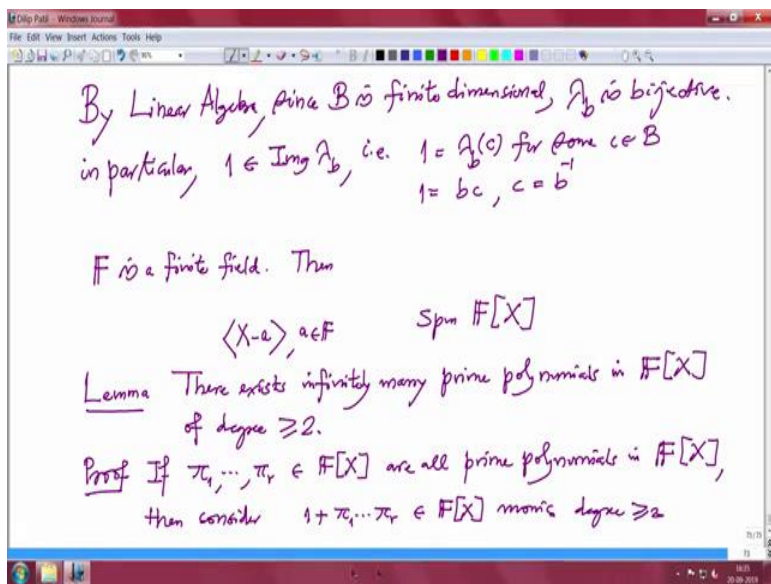 Dilip Patil - Windows Journal
File Edit View Insert Actions Tools Help
By Linear Algebra, since B is finite dimensional, λ_b is bijective.
in particular, 1 ∈ Img λ_b, i.e. 1 = λ_b(c) for some c ∈ B
1 = bc, c = b^{-1}
𝔽 is a finite field. Then
⟨X-a⟩, a∈𝔽 Spm 𝔽[X]
Lemma There exists infinitely many prime polynomials in 𝔽[X]
of degree ≥2.
Proof If π_1, ..., π_r ∈ 𝔽[X] are all prime polynomials in 𝔽[X],
then consider 1 + π_1 ... π_r ∈ 𝔽[X] monic degree ≥2
73/73
73
20-09-2019